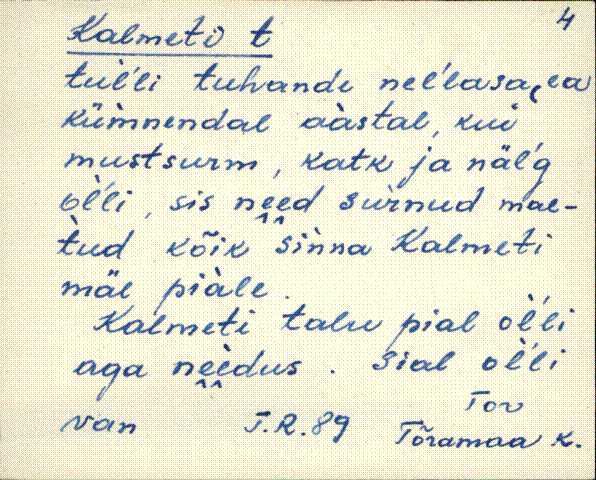 4
Kalmeti t
tul̀'li tuhande nel'lasa,ea
kümnendal aàstal, kui
mustsurm, katk ja näl'g
òl'li, sis need surnud mae-
tud kõik sinna Kalmeti
mäe piàle.
Kalmeti talu pial òl'li
aga neèdus. Sial òl'li
van T.R.89 Tor
Tõramaa k.